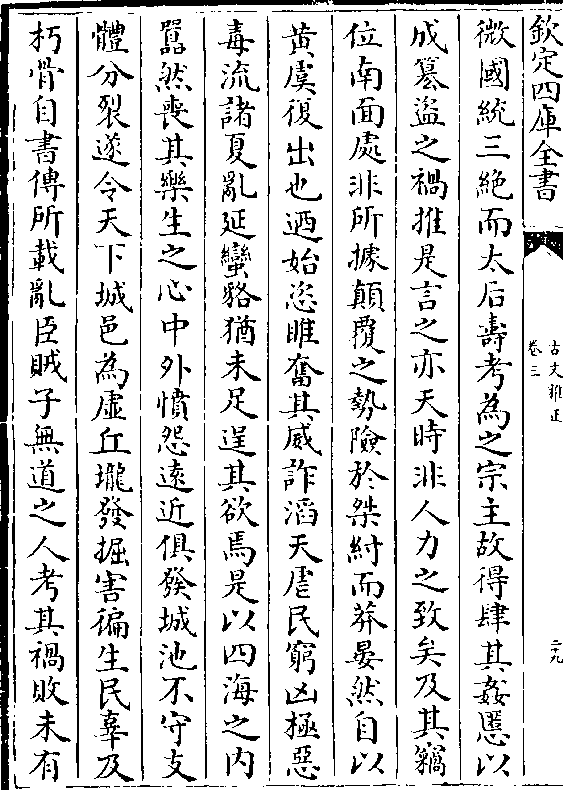 欽定四庫全書
古文雅正
卷三
二九
微國統三絕而太后壽考為之宗主故得肆其姦慝以
成簒盜之禍推是言之亦天時非人力之致矣及其竊
位南面處非所據顛覆之勢險於桀紂而莽晏然自以
黃虞復出也廼始恣睢奮其威詐滔天虐民窮凶極惡
毒流諸夏亂延蠻貉猶未足逞其欲焉是以四海之内
囂然喪其樂生之心中外憤怨遠近俱發城池不守支
體分裂遂令天下城邑為虛丘壠發掘害徧生民辜及
朽骨自書傳所載亂臣賊子無道之人考其禍敗未有